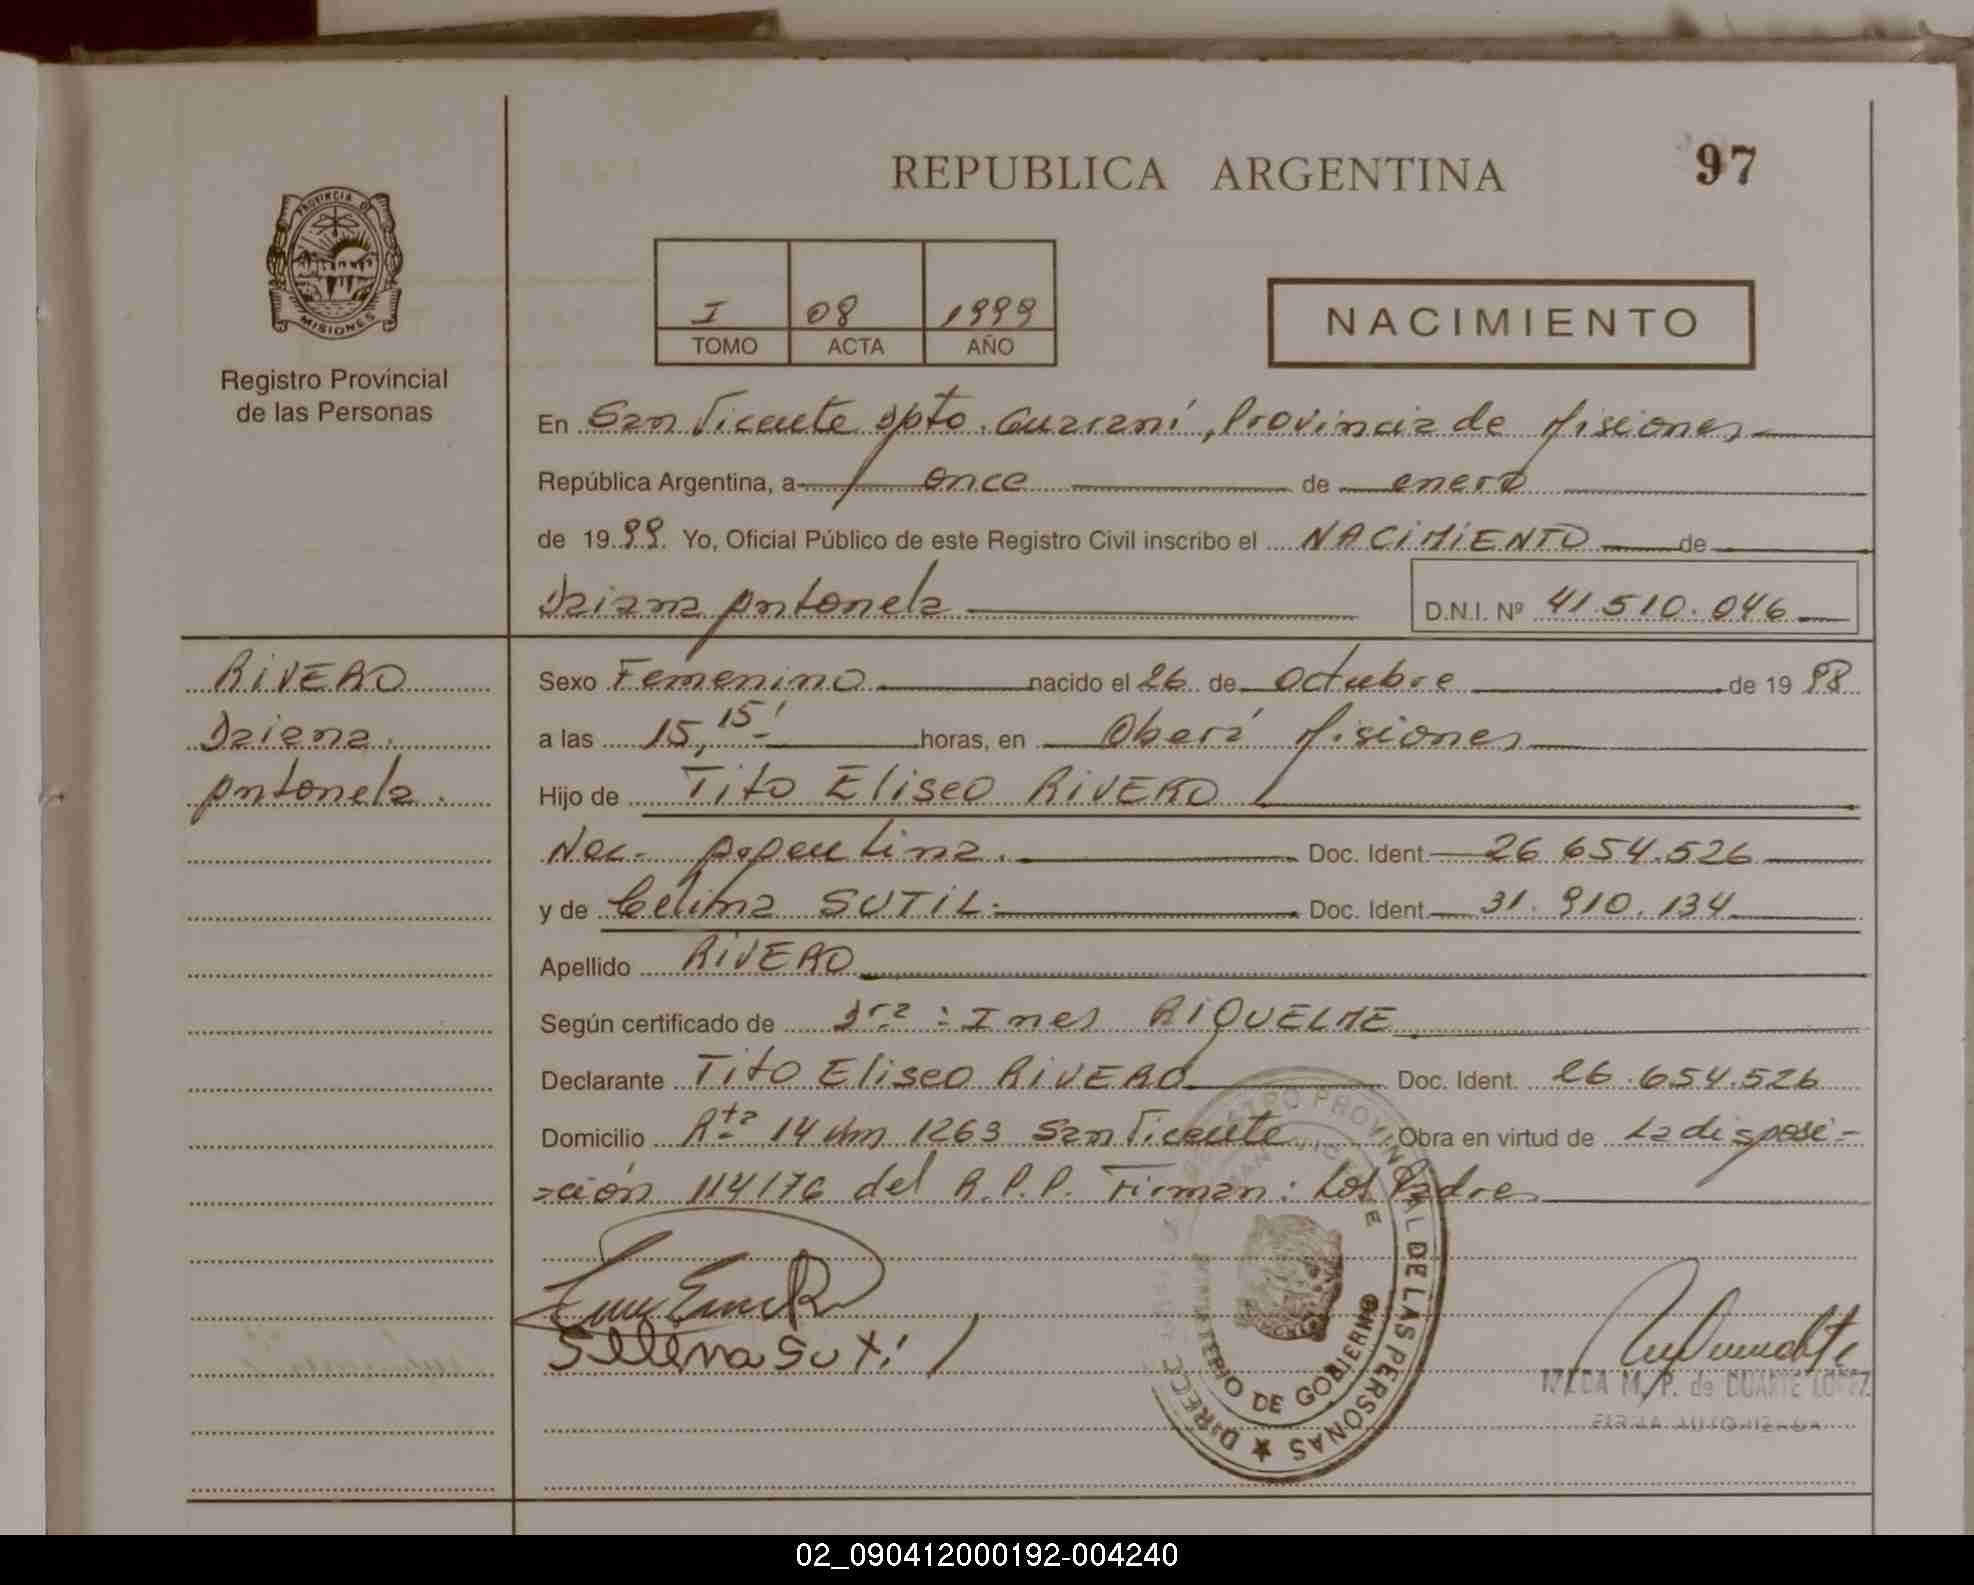 REPUBLICA ARGENTINA
97
PROVINCIA DE
MISIONES
Registro Provincial
de las Personas
I 08 1999
TOMO ACTA AÑO
NACIMIENTO
En San Vicente Dpto. Guaraní, Provincia de Misiones
República Argentina, a once de enero
de 1999. Yo, Oficial Público de este Registro Civil inscribo el NACIMIENTO de
Daiana Antonela D.N.I. Nº 41.510.046
RIVERO
Daiana
Antonela.
Sexo Femenino nacido el 26 de Octubre de 1998
a las 15,15' horas, en Oberá Misiones
Hijo de Tito Eliseo RIVERO
Nac. Argentina. Doc. Ident. 26.654.526
y de Celina SUTIL. Doc. Ident. 31.910.134
Apellido RIVERO
Según certificado de Dra: Ines RIQUELME
Declarante Tito Eliseo RIVERO Doc. Ident. 26.654.526
Domicilio Rta 14 Km 1263 San Vicente Obra en virtud de La disposi-
-ción 114/76 del R.P.P. Firman: Los Padres
Sellena Suti
REGISTRO PROVINCIAL DE LAS PERSONAS
SAN VICENTE
MINISTERIO DE GOBIERNO
M. P. de DUARTE LOPEZ
FIRMA AUTORIZADA
02_090412000192-004240